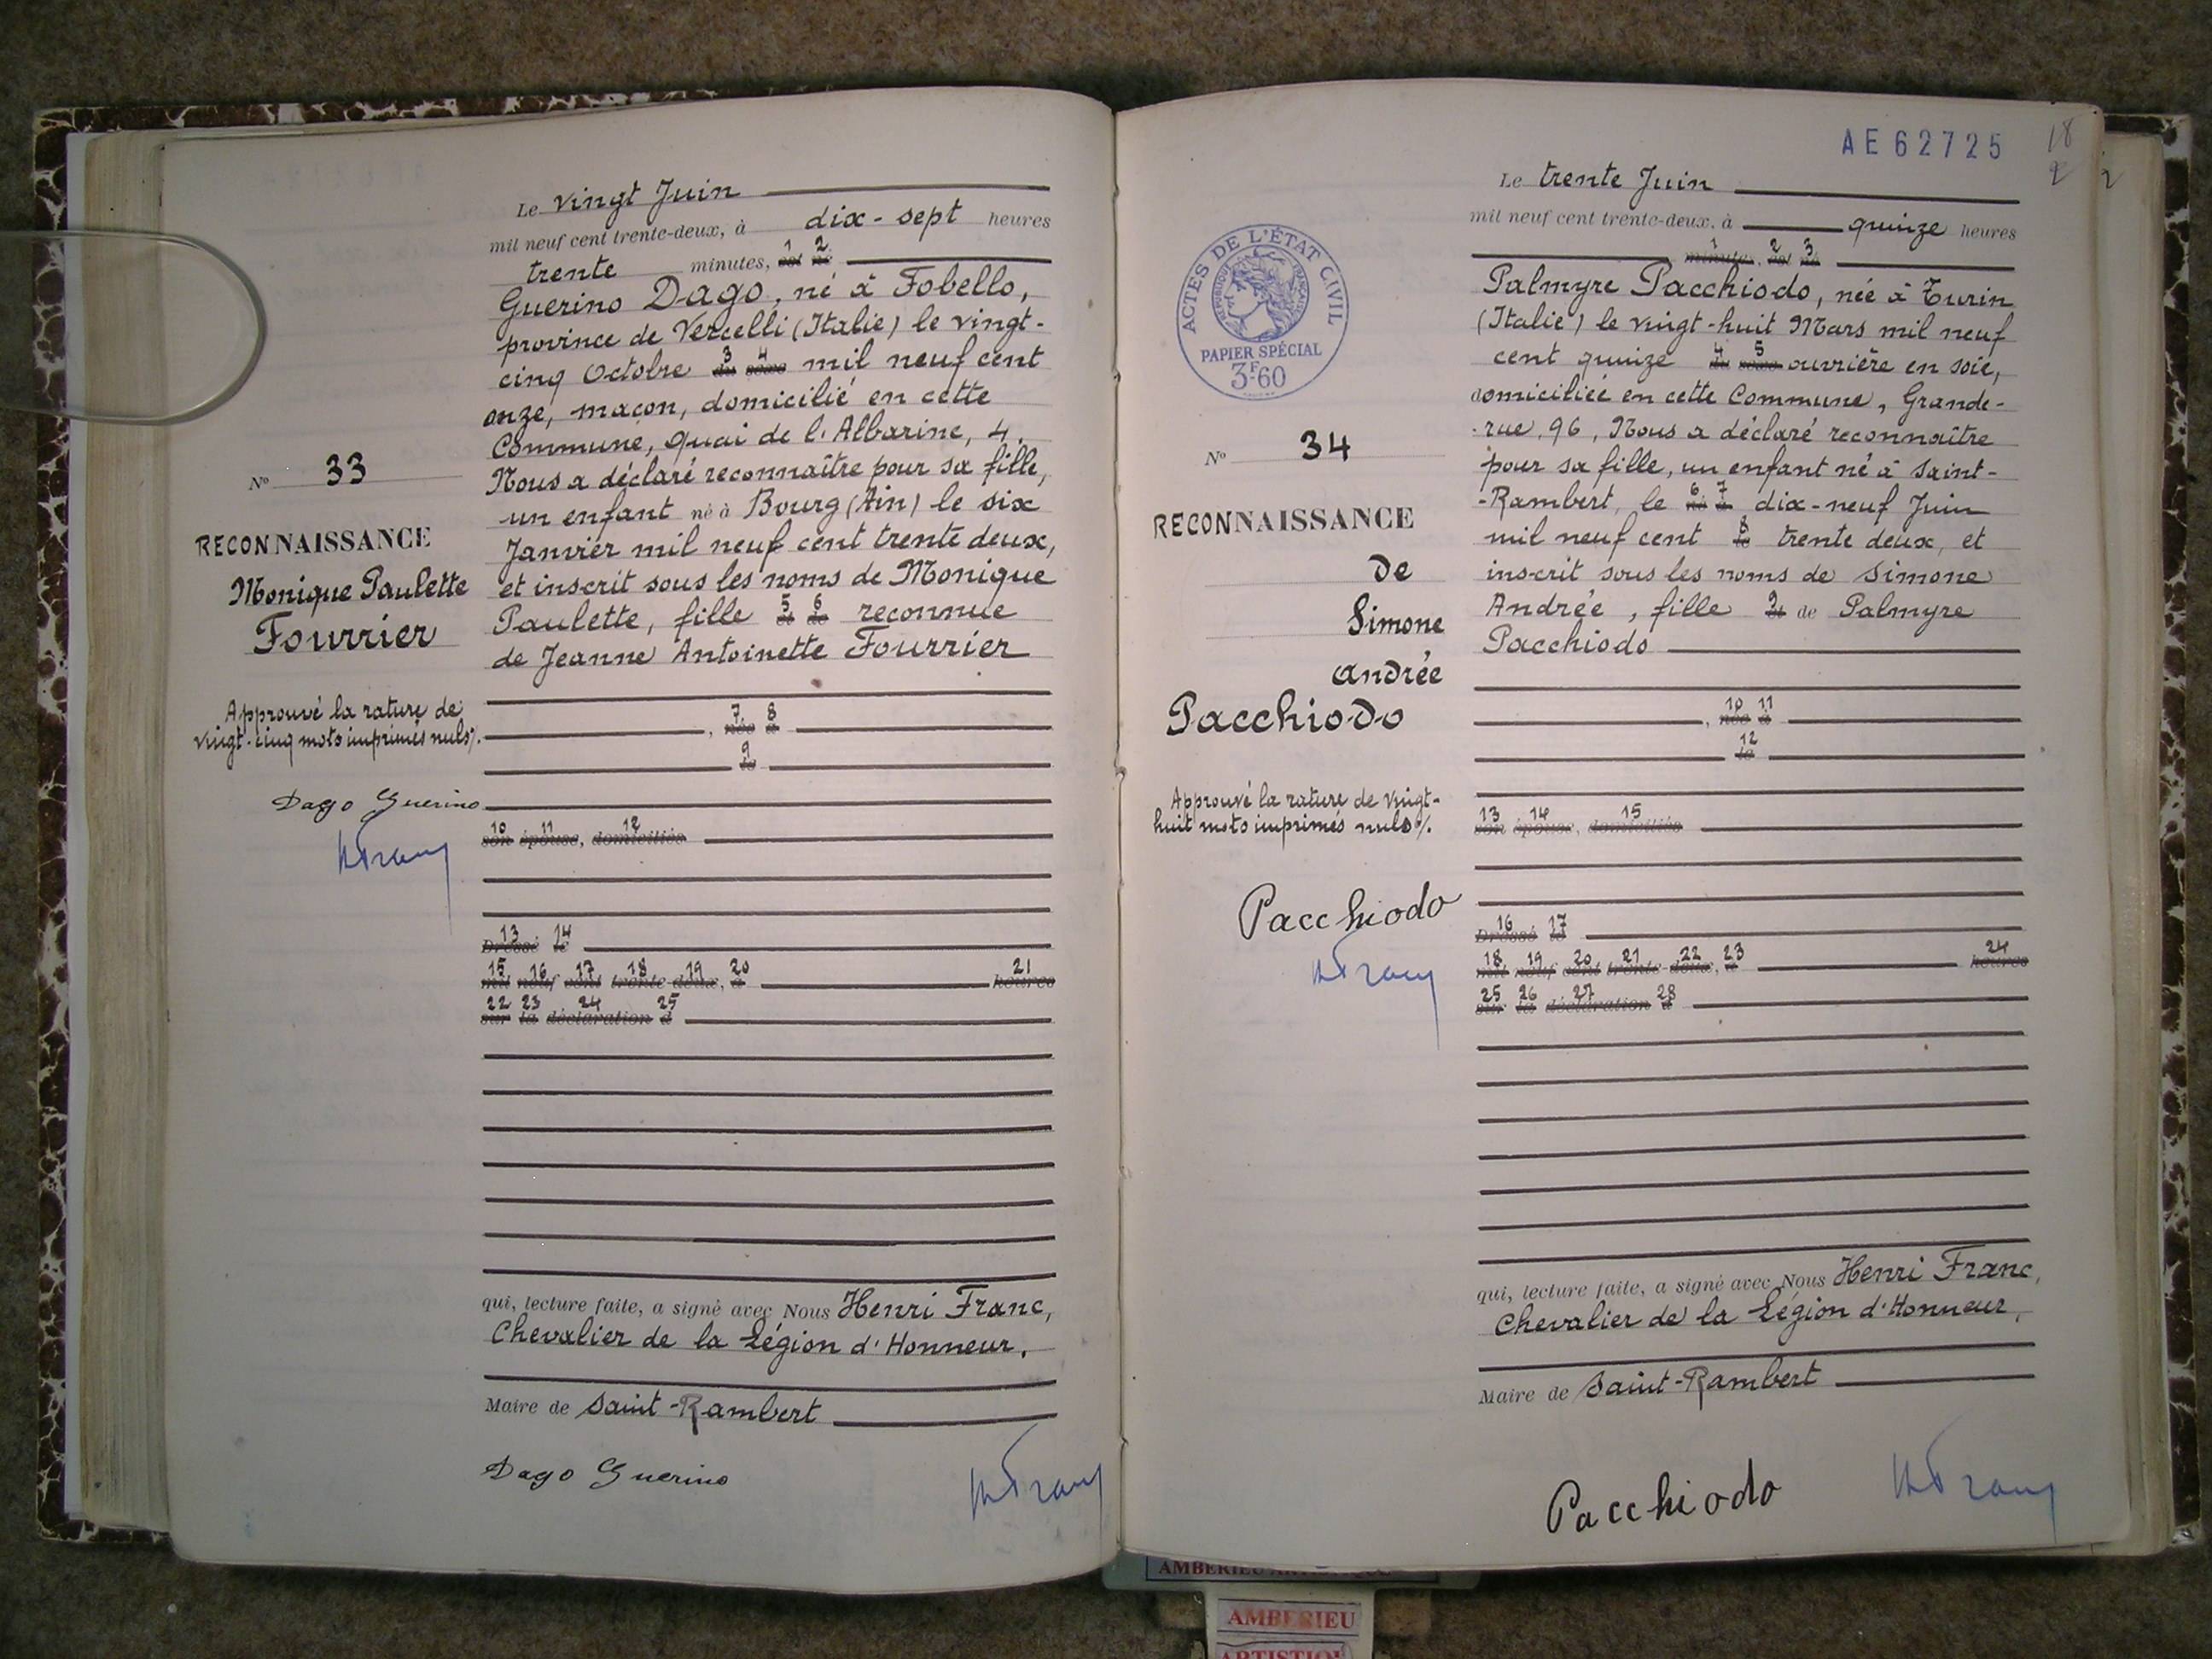 Le vingt Juin
mil neuf cent trente-deux, à dix-sept heures
trente minutes, est né 1 2
Guerino Dago, né à Fobello,
province de Vercelli (Italie) le vingt-
cinq Octobre du sexe 3 4 mil neuf cent
onze, maçon, domicilié en cette
Commune, quai de l'Albarine, 4.
Nous a déclaré reconnaître pour sa fille,
un enfant né à Bourg (Ain) le six
Janvier mil neuf cent trente deux,
et inscrit sous les noms de Monique
Paulette, fille 5 6 reconnue
de Jeanne Antoinette Fourrier
7 8
, née à
9
le
10 11 12
son épouse, domiciliés
13 14
Dressé le
15 16 17 18 19 20 21
mil neuf cent trente-deux, à heures
22 23 24 25
sur la déclaration d
qui, lecture faite, a signé avec Nous Henri Franc,
Chevalier de la Légion d'Honneur,
Maire de Saint-Rambert
Dago Guerino
HFranc
N° 33
RECONNAISSANCE
Monique Paulette
Fourrier
Approuvé la rature de
vingt-cinq mots imprimés nuls ./.
Dago Guerino
HFranc
AE62725
18
2
2
Le trente Juin
mil neuf cent trente-deux, à quinze heures
1 2 3
minutes, est né
Palmyre Pacchiodo, née à Turin
(Italie) le vingt-huit Mars mil neuf
cent quinze du sexe 4 5 ouvrière en soie,
domiciliée en cette Commune, Grande-
-rue, 96, Nous a déclaré reconnaître
pour sa fille, un enfant né à Saint-
-Rambert, le 6 7 dix-neuf Juin
mil neuf cent 8 trente deux, et
inscrit sous les noms de Simone
Andrée, fille 9 de Palmyre
Pacchiodo
10 11
, née à
12
le
13 14 15
son épouse, domiciliés
16 17
Dressé le
18 19 20 21 22 23 24
mil neuf cent trente-deux, à heures
25 26 27 28
sur la déclaration d
qui, lecture faite, a signé avec Nous Henri Franc,
Chevalier de la Légion d'Honneur,
Maire de Saint-Rambert
Pacchiodo
HFranc
ACTES DE L'ÉTAT CIVIL
RÉPUBLIQUE FRANÇAISE
PAPIER SPÉCIAL
3F60
N° 34
RECONNAISSANCE
de
Simone
Andrée
Pacchiodo
Approuvé la rature de vingt-
huit mots imprimés nuls ./.
Pacchiodo
HFranc
AMBERIEU ARTISTIQUE
AMBERIEU